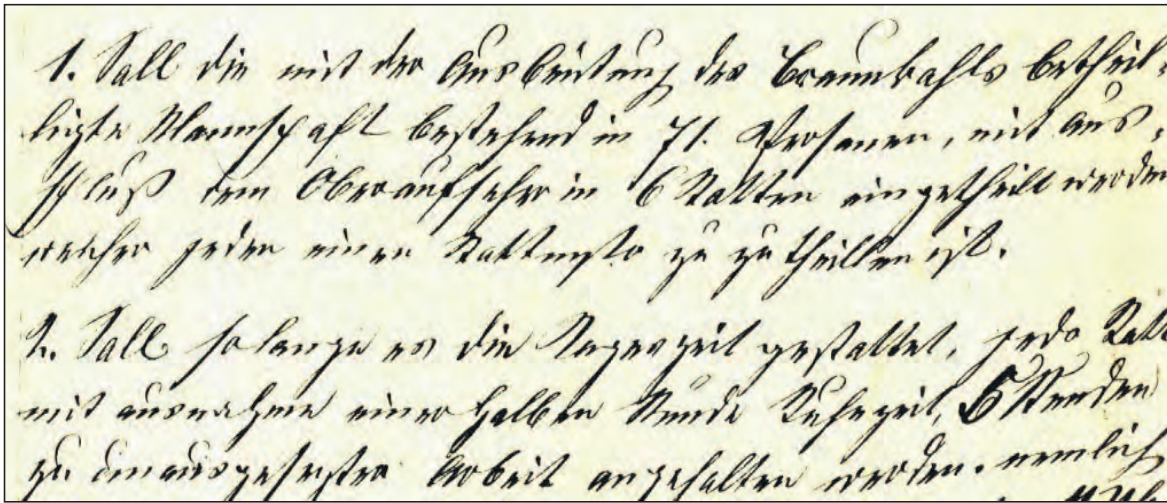 1. Soll die mit der Ausbeutung des Braunkohls betheil-
ligte Mannschaft bestehend in 71. Persohnen, mit Aus-
schluß dem Oberaufseher in 6 Rotten eingetheilt werden
welcher jeden einen Rottmstr zu zu theillen ist.
2. Soll so lange es die Tageszeit gestattet, jede Rott
mit ausnahme einer Halben Stunde Ruhezeit, 6 Stunden
zu unausgesezter Arbeit angehalten werden. nemlich